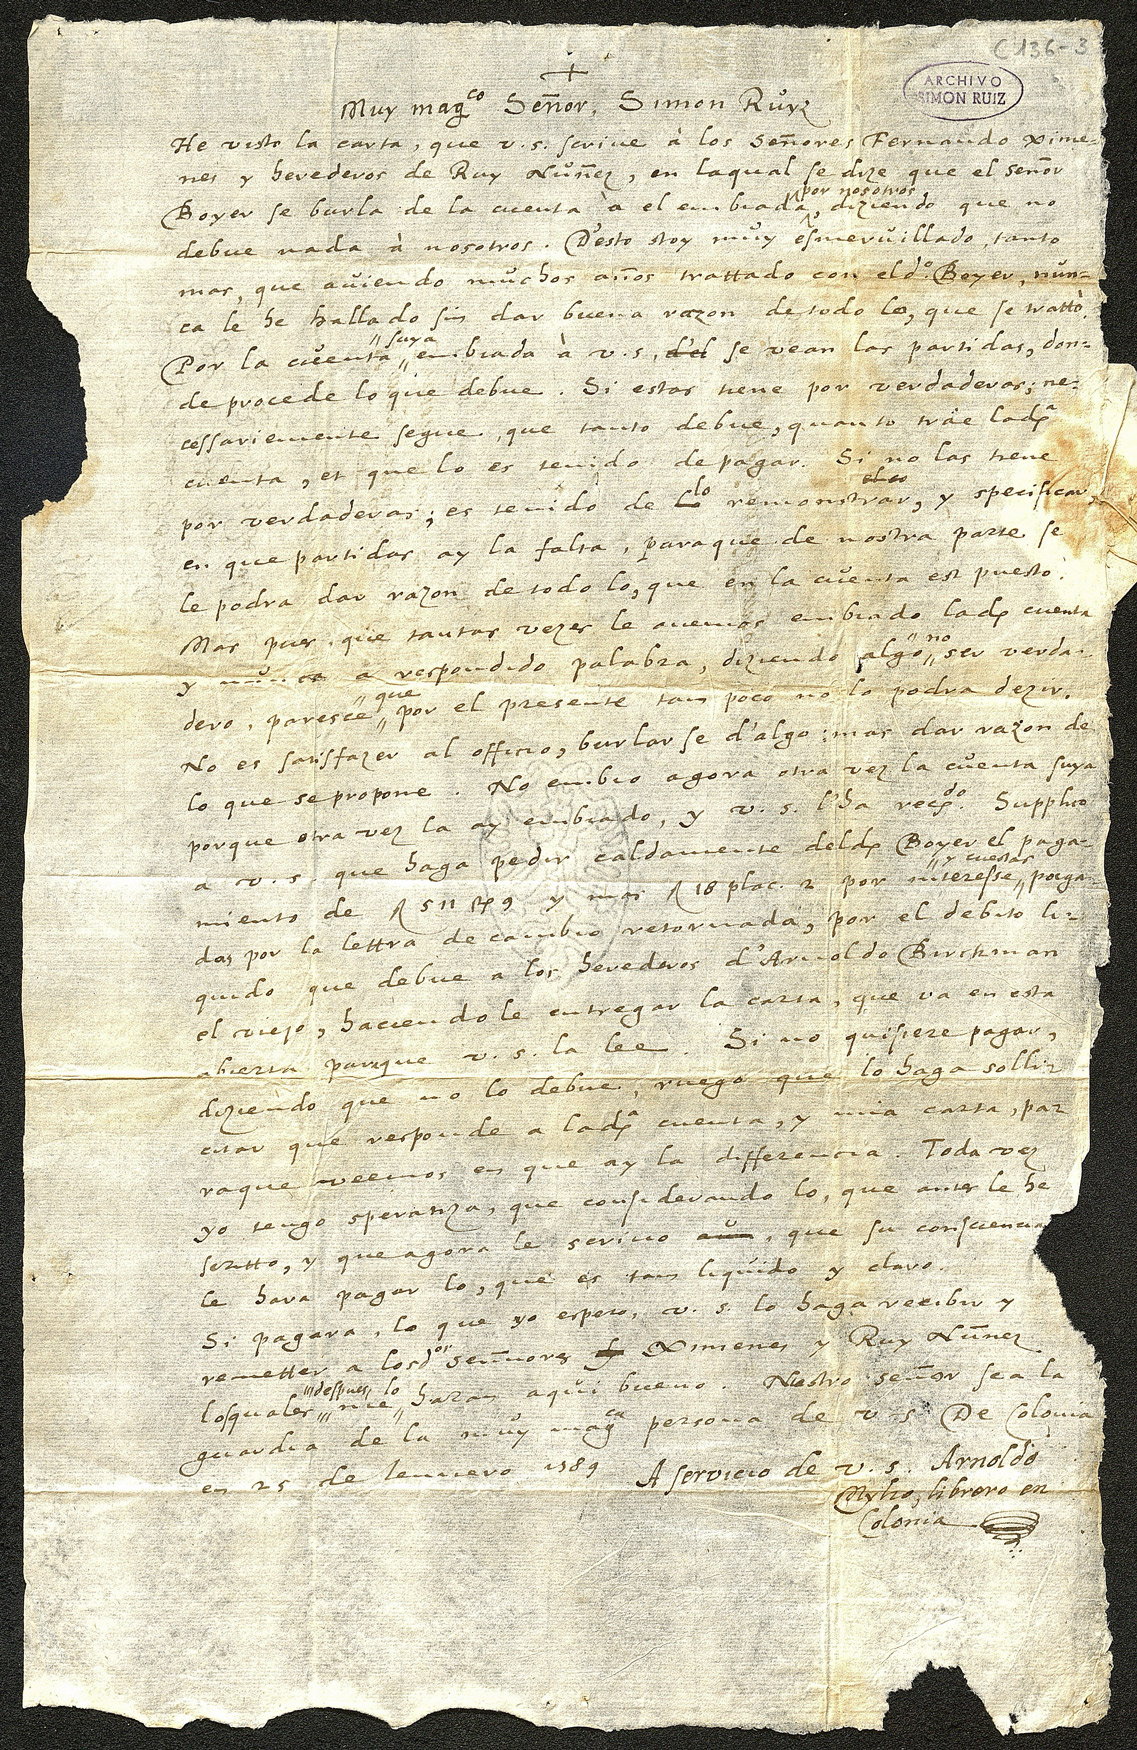 C 136-3
ARCHIVO
SIMON RUIZ
+
Muy mag.co Señor, Simon Ruyz
He visto la carta, que v. s. scriue à los Señores Fernando Xime-
nes y herederos de Ruy Nuñez, en laqual se dize que el señor
Boyer se burla de la cuenta à el embiada por nosotros, diziendo que no
debue nada à nosotros. D'esto stoy muy esmeruillado, tanto
mas, que auiendo muchos años trattado con el do. Boyer, nun-
ca le he hallado sin dar buena razon de todo lo, que se trattò.
Por la cuenta suya embiada à v. s. d'el se vean las partidas, don-
de procede lo que debue. Si estas tiene por verdaderas; ne-
cessariemente segue, que tanto debue, quanto tràe lada
cuenta, et que lo es tenido de pagar. Si no las tiene
por verdaderas; es tenido de lo remonstrar, y specificar
en que partidas ay la falta, paraque de nostra parte se
le podra dar razon de todo lo, que en la cuenta est puesto.
Mas pues que tantas vezes le auemos embiado lad. cuenta
y nunca a respondido palabra, diziendo algo no ser verda-
dero, paresce que por el presente tam poco no lo podra dezir.
No es satisfazer al officio, burlar se d'algo: mas dar razon de
lo que se propone. No embio agora otra vez la cuenta suya
porque otra vez la ay embiado, y v. s. l'ha recdo. Supplico
a v. s. que haga pedir caldamente deld. Boyer el paga-
miento de 511 9 y mas 18 plac. 2 por interesse y custas paga-
das por la lettra de cambio retornada, por el debito li-
quido que debue a los herederos d'Arnoldo Birckman
el viejo, haciendo le entregar la carta, que va en esta
abierta parque v. s. la lee. Si no quisiere pagar,
diziendo que no lo debue, ruego que lo haga solli-
citar que responde a lada cuenta, y mia carta, pa-
raque veemos en que ay la differencia. Toda vez
yo tengo speranza, que considerando lo, que antes le he
scritto, y que agora le scriuo aun, que su consciencia
le hara pagar lo, que es tam liquido y claro.
Si pagara, lo que yo espero, v. s. lo haga recibir y
remetter a losdos señores Ximenes y Ruy Nuñez
losquales despues lo me haran aqui bueno. Nostro señor sea la
guardia de la muy magca persona de v. s. De Colonia
en 25 de Ienuero 1589 A servicio de v. s. Arnoldo
Mylio, librero en
Colonia